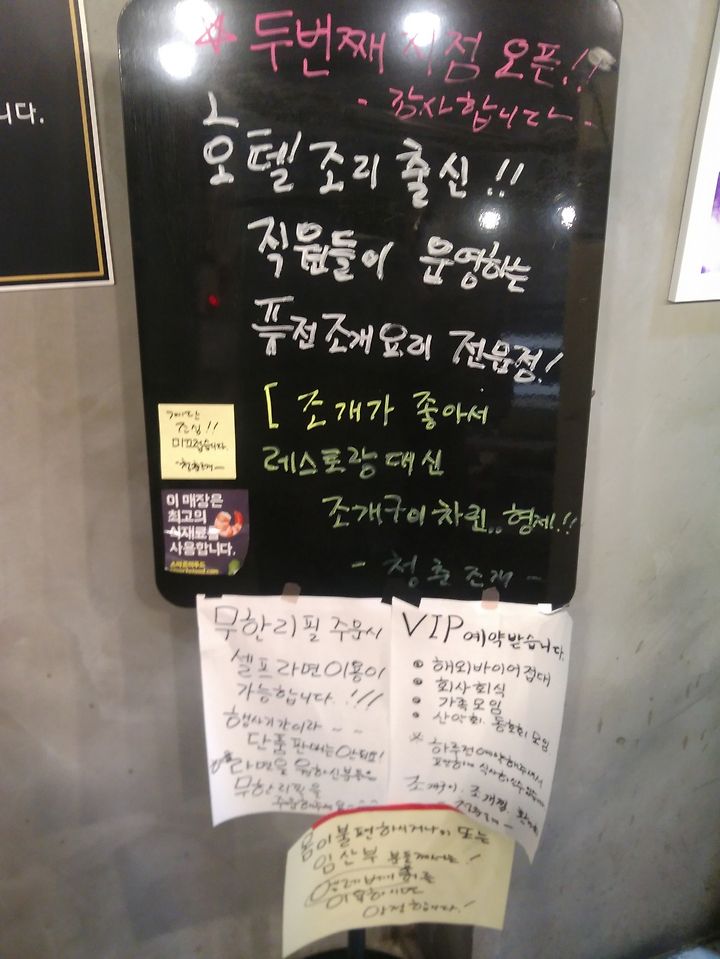 니다.
두번째 지점 오픈!!
- 감사합니다~ -
호텔조리 출신!!
직원들이 운영하는
퓨전조개요리 전문점!
[ 조개가 좋아서
레스토랑대신
조개구이 차린.. 형제!!
- 청춘조개 -
계단
조심!!
미끄럽습니다.
이 매장은
최고의
식재료를
사용합니다.
무한리필 주문시
셀프라면이용이
가능합니다. !!!
행사기간이라~~
단품판매는안되요!
라면을 원하신분들은
무한리필을
VIP예약받습니다.
해외바이어접대
회사회식
가족모임
산악회. 동호회모임
※ 하루전
조개구이. 조개찜.
몸이불편하시거나 또는
임산부 분들께서는!
엘레베이터를
안전합니다.!